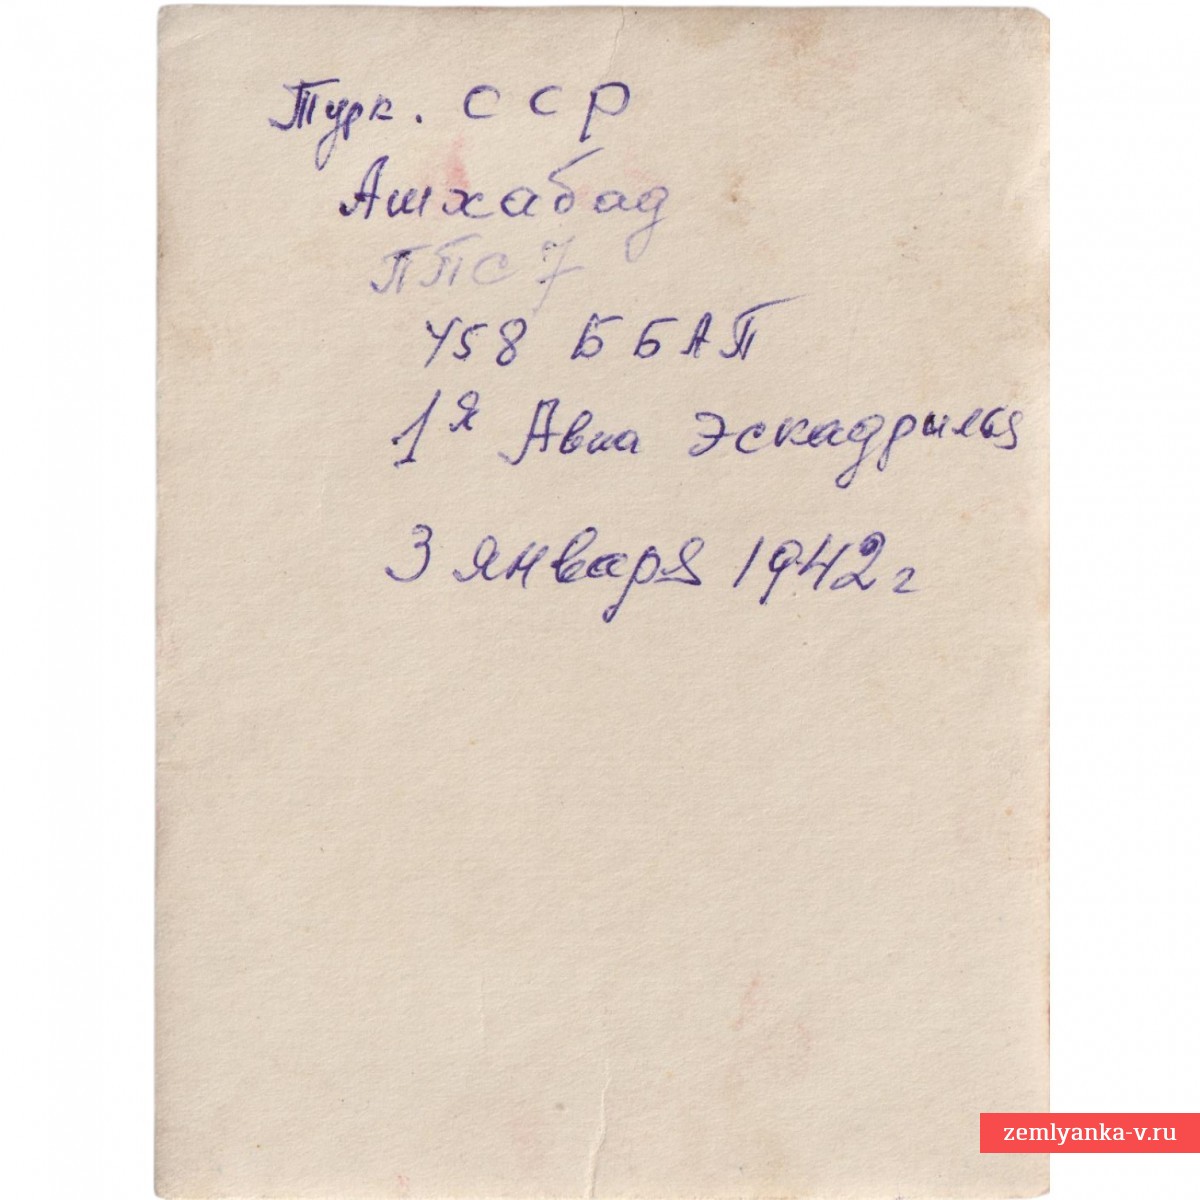 Турк. ССР
Ашхабад
ППС 7
458 ББАП
1я Авиа Эскадрилья
3 января 1942 г
zemlyanka-v.ru